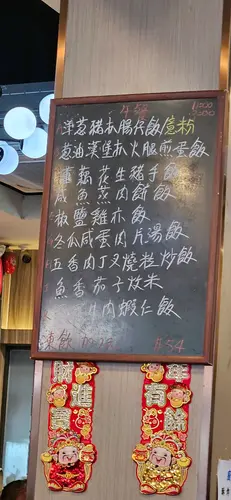 午餐
洋葱豬扒腸仔飯/意粉
葱油漢堡扒火腿煎蛋飯
蓮藕花生豬手飯
咸魚蒸肉餅飯
椒鹽雞扒飯
冬瓜咸蛋肉片湯飯
五香肉丁叉燒粒炒飯
魚香茄子炆米
肉蝦仁飯
凍飲
$54
財進寶
年有餘